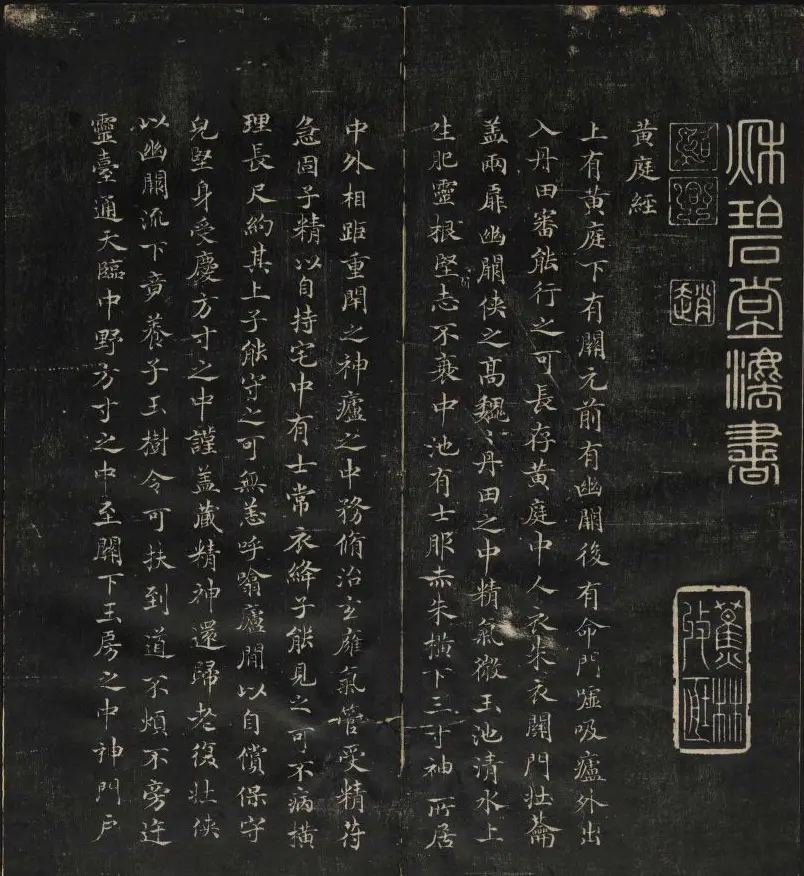 秋碧堂法書
趙
蕉林
黃庭經
上有黃庭下有關元前有幽闕後有命門噓吸廬外出
入丹田審能行之可長存黃庭中人衣朱衣關門壯蘥
盖兩扉幽闕俠之高魏〻丹田之中精氣微玉池清水上
生肥靈根堅志不衰中池有士服赤朱橫下三寸神所居
中外相距重閇之神廬之中務脩治玄廱氣管受精苻
急固子精以自持宅中有士常衣絳子能見之可不病橫
理長尺約其上子能守之可無恙呼噏廬間以自償保守
皃堅身受慶方寸之中謹盖藏精神還歸老復壯俠
以幽闕流下竟養子玉樹令可扶到道不煩不旁迕
靈臺通天臨中野方寸之中至闕下玉房之中神門戶